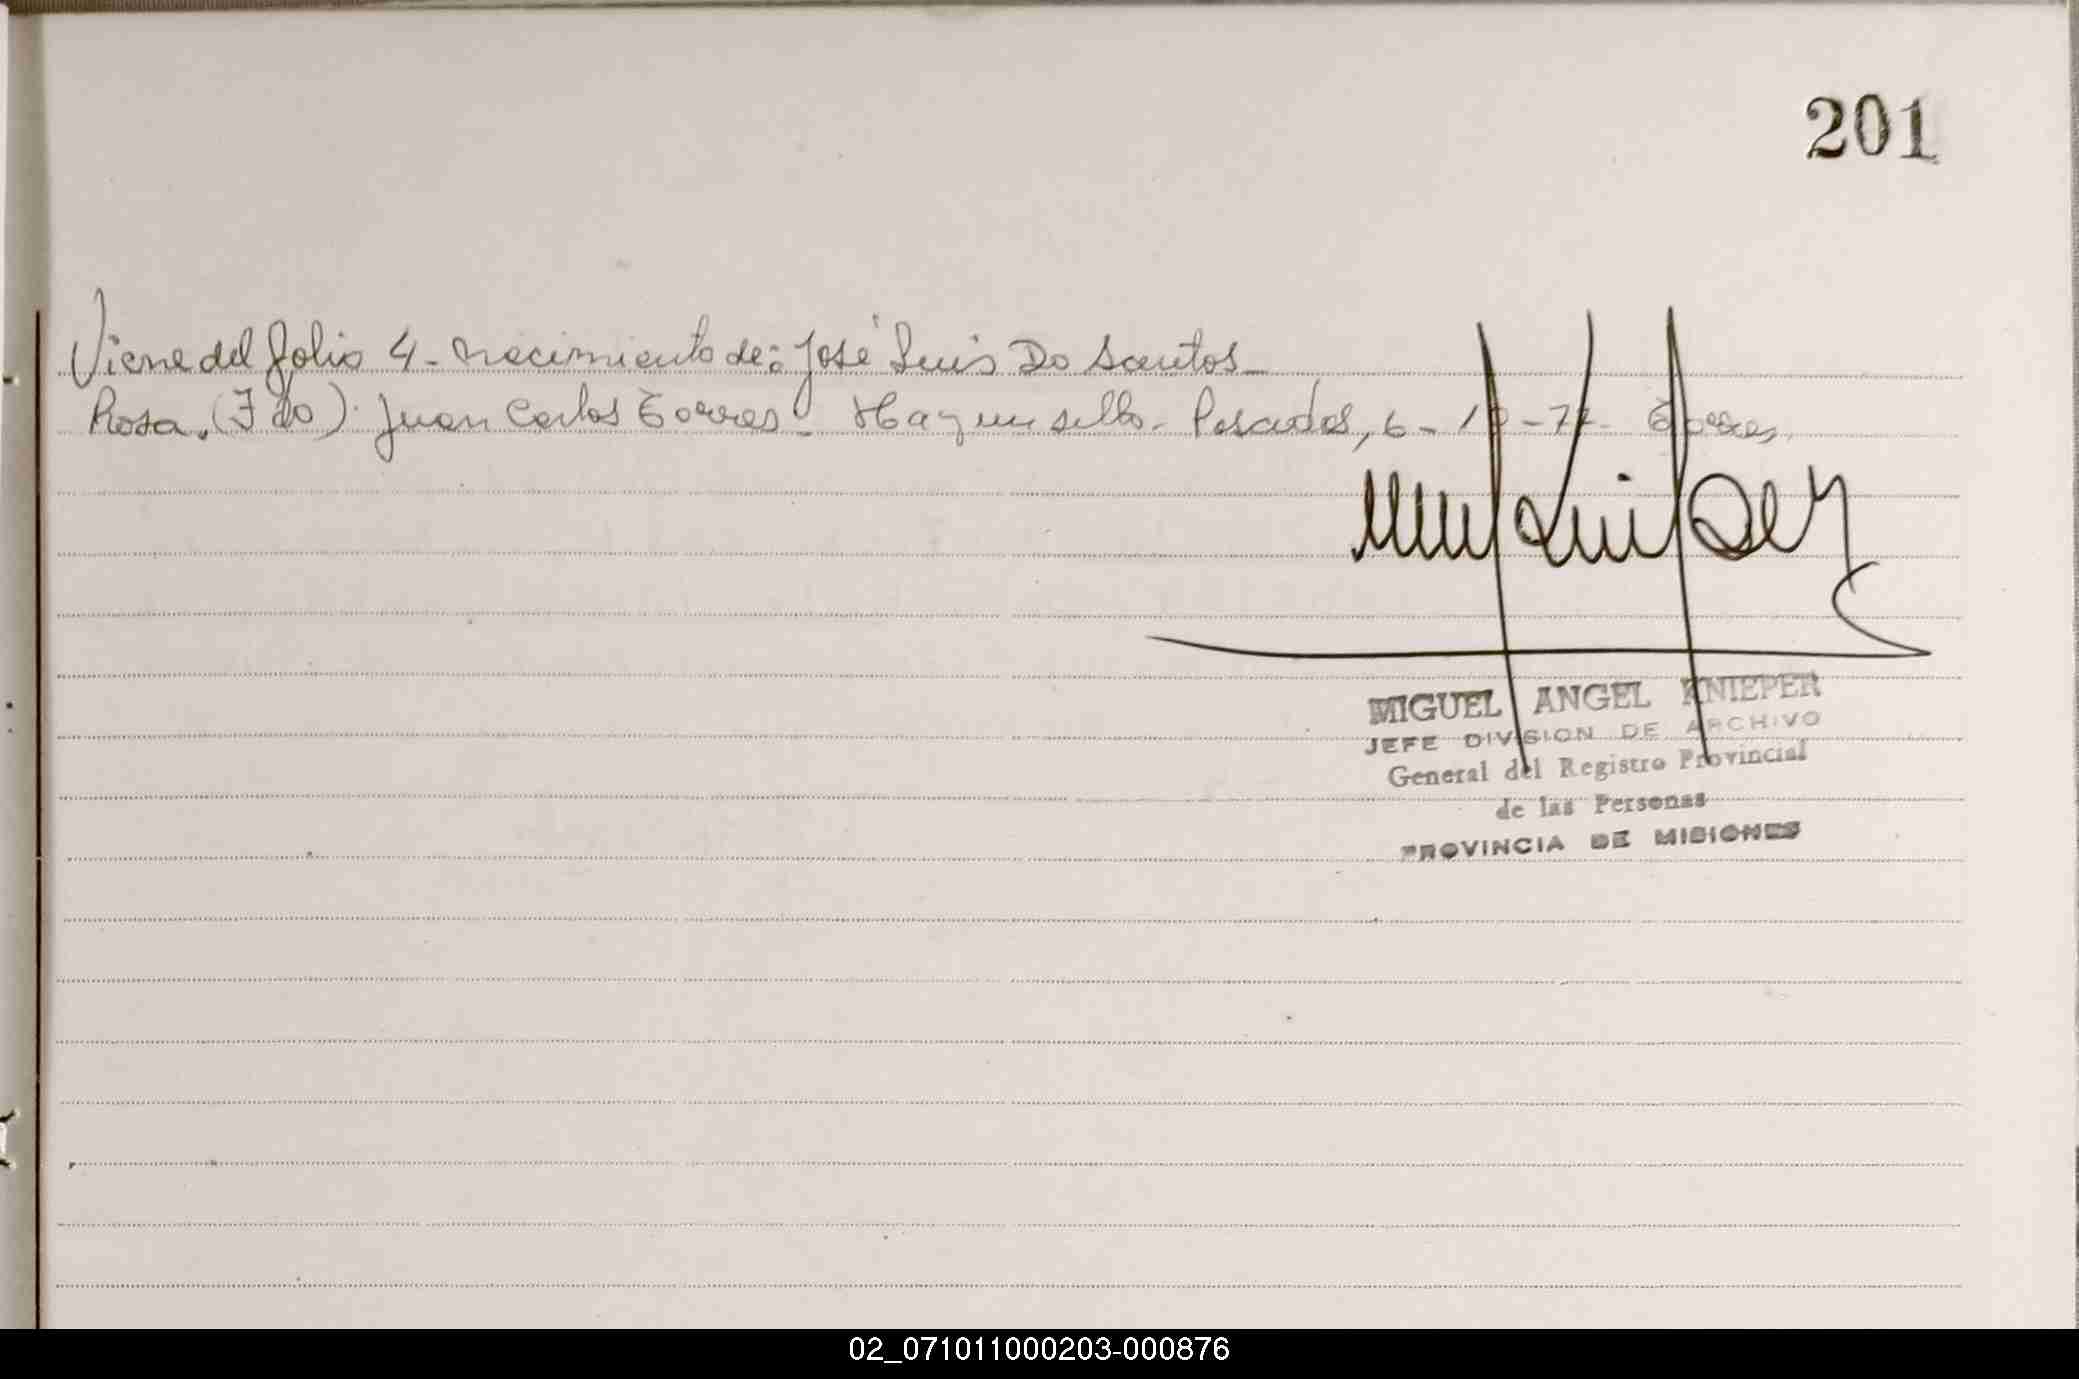 201
Viene del folio 4 - Nacimiento de: José Luis Do Santos -
Rosa. (Fdo). Juan Carlos Torres - Hay un sello - Posadas, 6 - 10 - 77. Torres,
MIGUEL ANGEL KNIEPER
JEFE DIVISION DE ARCHIVO
General del Registro Provincial
de las Personas
PROVINCIA DE MISIONES
02_071011000203-000876